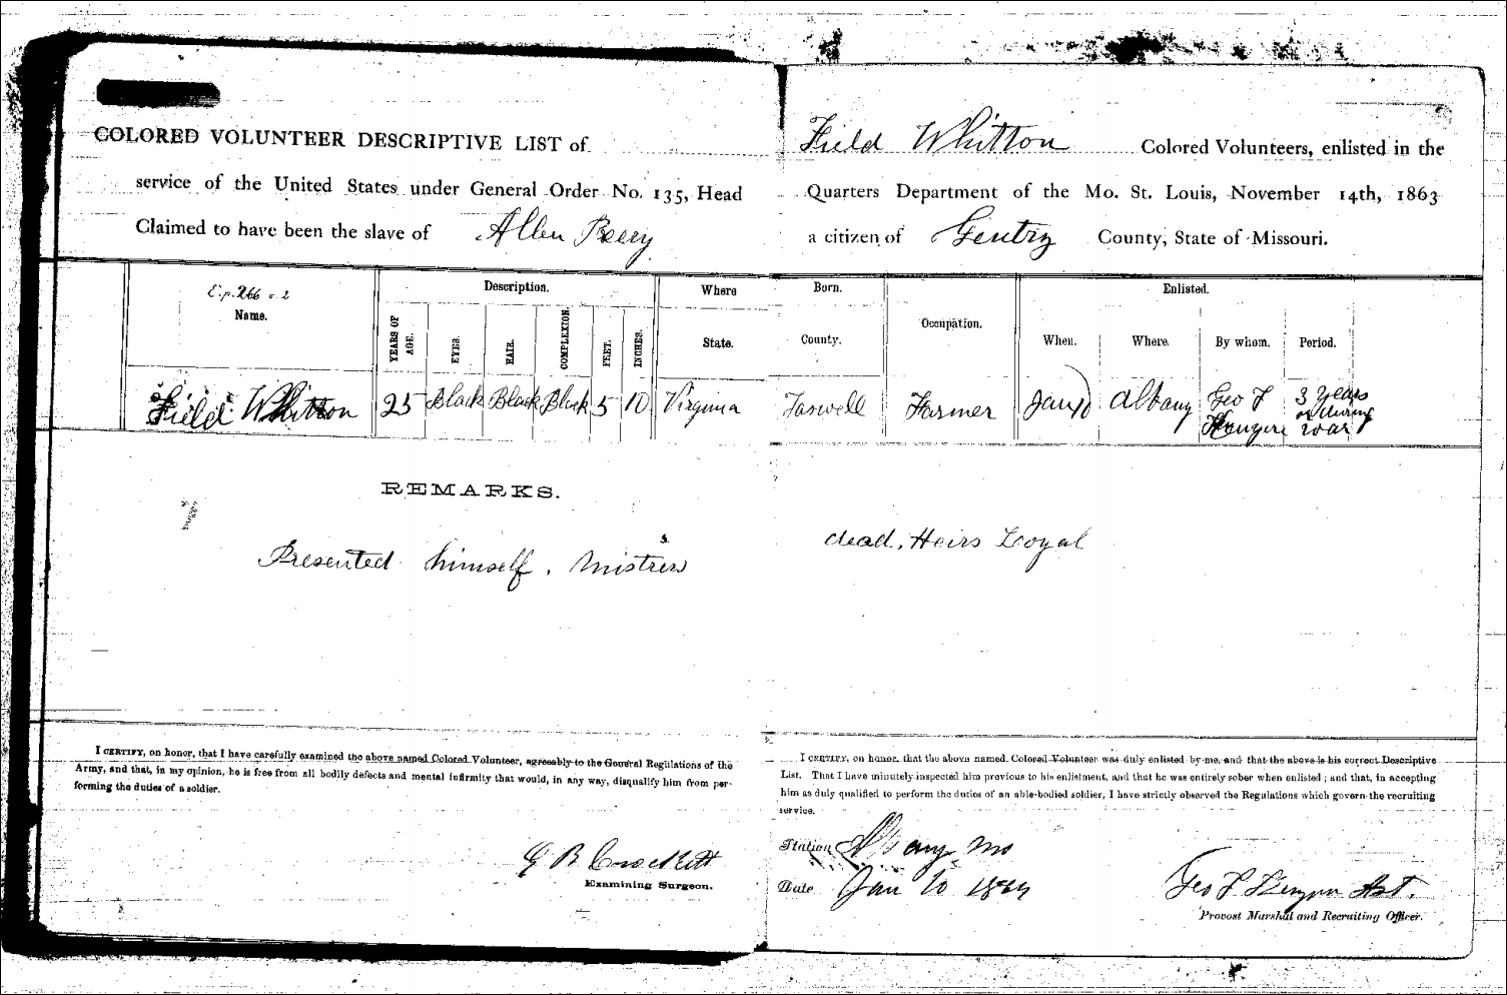 COLORED VOLUNTEER DESCRIPTIVE LIST of Field Whitton Colored Volunteers, enlisted in the
service of the United States under General Order No. 135, Head Quarters Department of the Mo. St. Louis, November 14th, 1863
Claimed to have been the slave of Allen Beery a citizen of Gentry County, State of Missouri.
Name.
Description.
Where Born.
Occupation.
Enlisted.
YEARS OF AGE.
EYES.
HAIR.
COMPLEXION.
FEET.
INCHES.
State.
County.
When.
Where.
By whom.
Period.
Field Whitton 25 Black Black Black 5 10 Virginia Taswell Farmer Jany 10 Albany Geo F 3 Years
or during
war
REMARKS.
Presented himself. Mistress dead, Heirs Loyal
I CERTIFY, on honor, that I have carefully examined the above named Colored Volunteer, agreeably to the General Regulations of the
Army, and that, in my opinion, he is free from all bodily defects and mental infirmity that would, in any way, disqualify him from per-
forming the duties of a soldier.
G B Crockett
Examining Surgeon.
I CERTIFY, on honor, that the above named Colored Volunteer was duly enlisted by me, and that the above is his correct Descriptive
List. That I have minutely inspected him previous to his enlistment, and that he was entirely sober when enlisted; and that, in accepting
him as duly qualified to perform the duties of an able-bodied soldier, I have strictly observed the Regulations which govern the recruiting
service.
Station Albany Mo
Date Jan 10 1864
Geo F Ast.
Provost Marshal and Recruiting Officer.